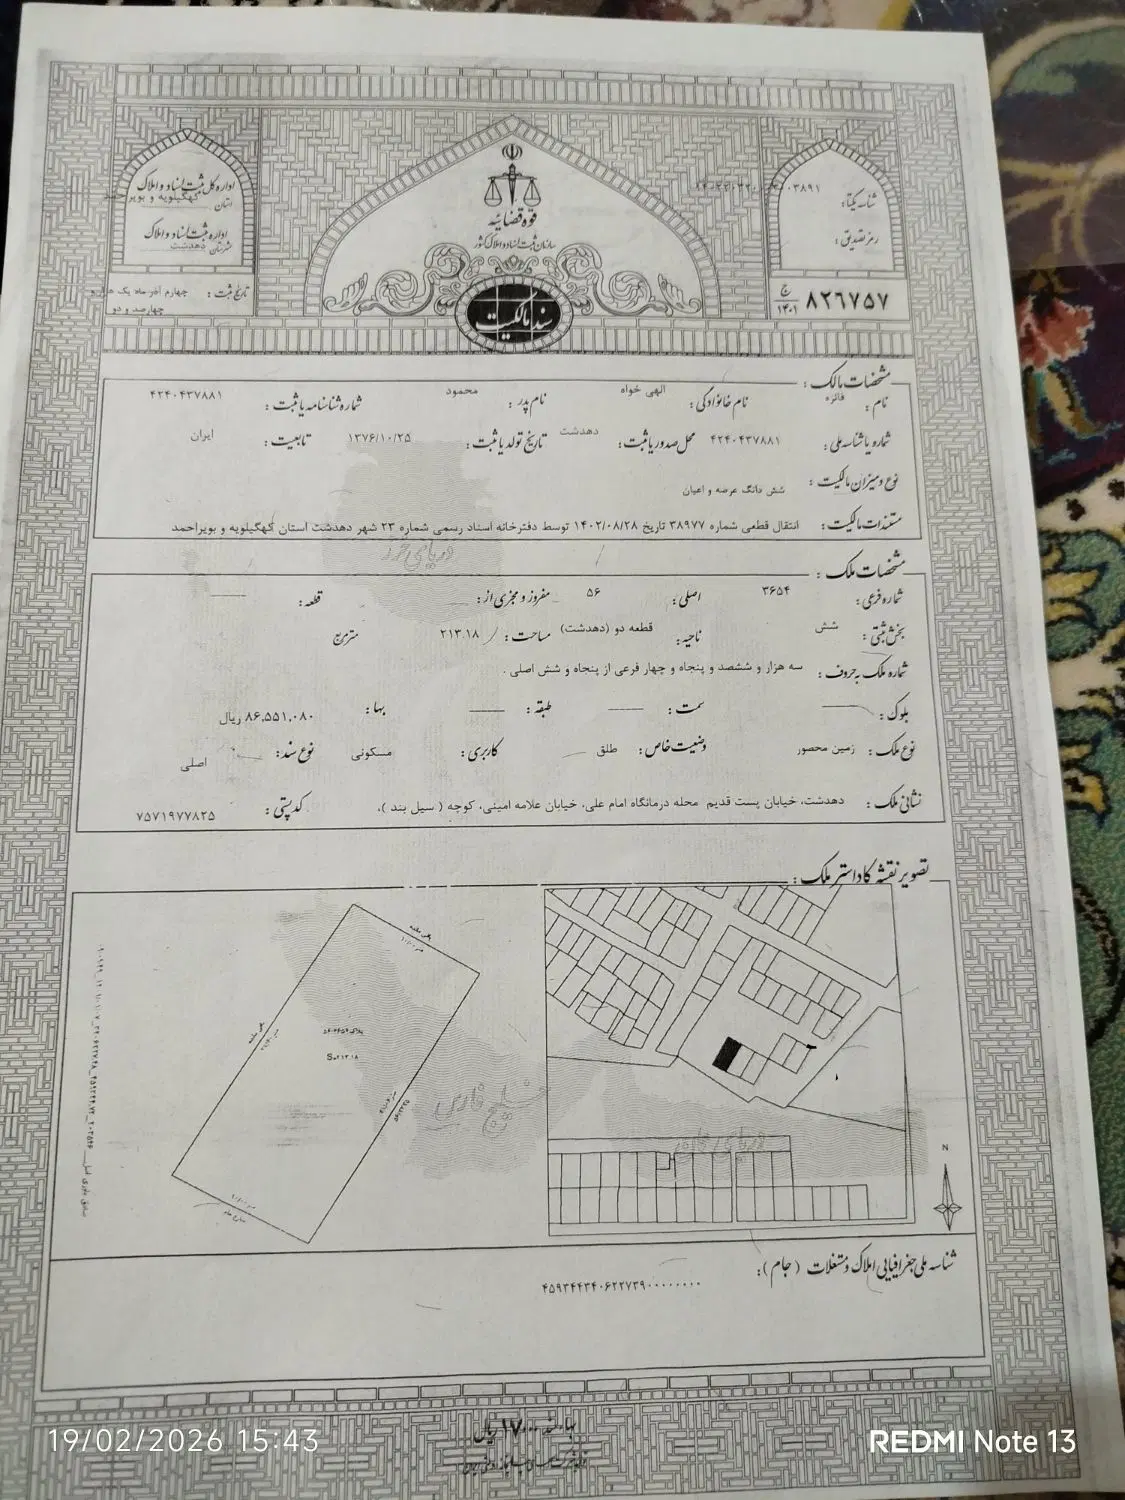 قوه قضائیه
سازمان ثبت اسناد و املاک کشور
سند مالکیت
اداره کل ثبت اسناد و املاک
استان کهگیلویه و بویراحمد
اداره ثبت اسناد و املاک
شهرستان دهدشت
تاریخ ثبت : چهارم آذر ماه یک
چهارصد و دو
شناسه یکتا :
رمز تصدیق :
ج ۱۴۰۱ ۸۲۶۷۵۷
مشخصات مالک :
نام : فائزه نام خانوادگی : الهی خواه نام پدر : محمود شماره شناسنامه یا ثبت : ۴۲۴۰۴۳۷۸۸۱
شماره یا شناسه ملی : ۴۲۴۰۴۳۷۸۸۱ محل صدور یا ثبت : دهدشت تاریخ تولد یا ثبت : ۱۳۷۶/۱۰/۲۵ تابعیت : ایران
نوع و میزان مالکیت : شش دانگ عرصه و اعیان
مستندات مالکیت : انتقال قطعی شماره ۳۸۹۷۷ تاریخ ۱۴۰۲/۰۸/۲۸ توسط دفترخانه اسناد رسمی شماره ۲۳ شهر دهدشت استان کهگیلویه و بویراحمد
دریای خزر
مشخصات ملک :
شماره فرعی : ۳۶۵۴ اصلی : ۵۶ مفروز و مجزی از : قطعه :
بخش ثبتی : شش ناحیه : قطعه دو (دهدشت) مساحت : ۲۱۳.۱۸ مترمربع
شماره ملک به حروف : سه هزار و ششصد و پنجاه و چهار فرعی از پنجاه و شش اصلی .
بلوک : سمت : طبقه : بها : ۸۶,۵۵۱,۰۸۰ ریال
نوع ملک : زمین محصور وضعیت خاص : طلق کاربری : مسکونی نوع سند : اصلی
نشانی ملک : دهدشت، خیابان پست قدیم محله درمانگاه امام علی، خیابان علامه امینی، کوچه ( سیل بند )،
کدپستی : ۷۵۷۱۹۷۷۸۲۵
تصویر نقشه کاداستر ملک :
S=۲۱۳.۱۸
خلیج فارس
N
شناسه ملی جغرافیایی املاک و مستغلات ( جام ) :
19/02/2026 15:43
REDMI Note 13